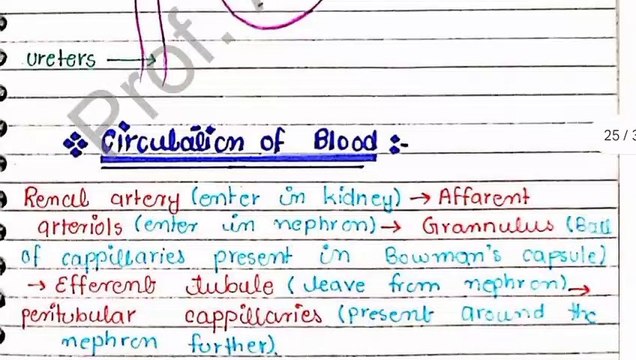 Prof.
ureters
Circulation of Blood :-
25 / 3
Renal artery (enter in kidney) → Affarent
arteriols (enter in nephron) → Grannulus (Ball
of cappillaries present in Bowman's capsule)
→ Efferent tubule (leave from nephron) →
peritubular cappillaries (present around the
nephron further).